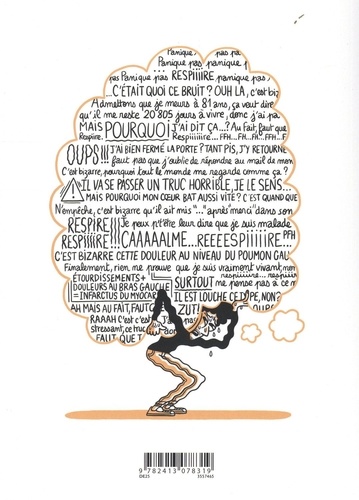 Panique, pas pa
Panique pas panique p
pas Panique pas RESPIIIIRE panique pas,
...C'ÉTAIT QUOI CE BRUIT? OUH LA, c'est biz
Admettons que je meurs à 81 ans, ça veut dire
qu'il me reste 20'805 jours à vivre, donc j'ai pa
MAIS POURQUOI J'AI DIT ÇA...? Au fait, faut que
Respire. Respiiiiire... FFH... FFH... FFH... F
OUPS!!! J'AI BIEN FERMÉ LA PORTE? TANT PIS, J'Y RETOURNE
faut pas que j'oublie de répondre au mail de mon
C'est bizarre, pourquoi tout le monde me regarde comme ça?
IL VA SE PASSER UN TRUC HORRIBLE, JE LE SENS...
MAIS POURQUOI MON CŒUR BAT AUSSI VITE? C'EST QUAND QUE
N'empêche, c'est bizarre qu'il ait mis "..." après "merci" dans son
RESPIRE!!! Je peux p't'être leur dire que je suis malade
RESPIIIIRE!!! CAAAAALME...REEEESPIIIIIRE... PFH
C'EST BIZARRE CETTE DOULEUR AU NIVEAU DU POUMON GAU
Finalement, rien ne prouve que je suis vraiment vivant, non
ÉTOURDISSEMENTS+ respiiiiire... respiiiiiire
DOULEURS AU BRAS GAUCHE SURTOUT ne pense pas à ce m
= INFARCTUS DU MYOCAR IL EST LOUCHE CE TYPE, NON?
AH MAIS AU FAIT, FAUT ZUT!
RAAAH C'est c'est J'ai
stressant, ce truc
FAUT QUE T
9 782413 078319
IDE25 3557465